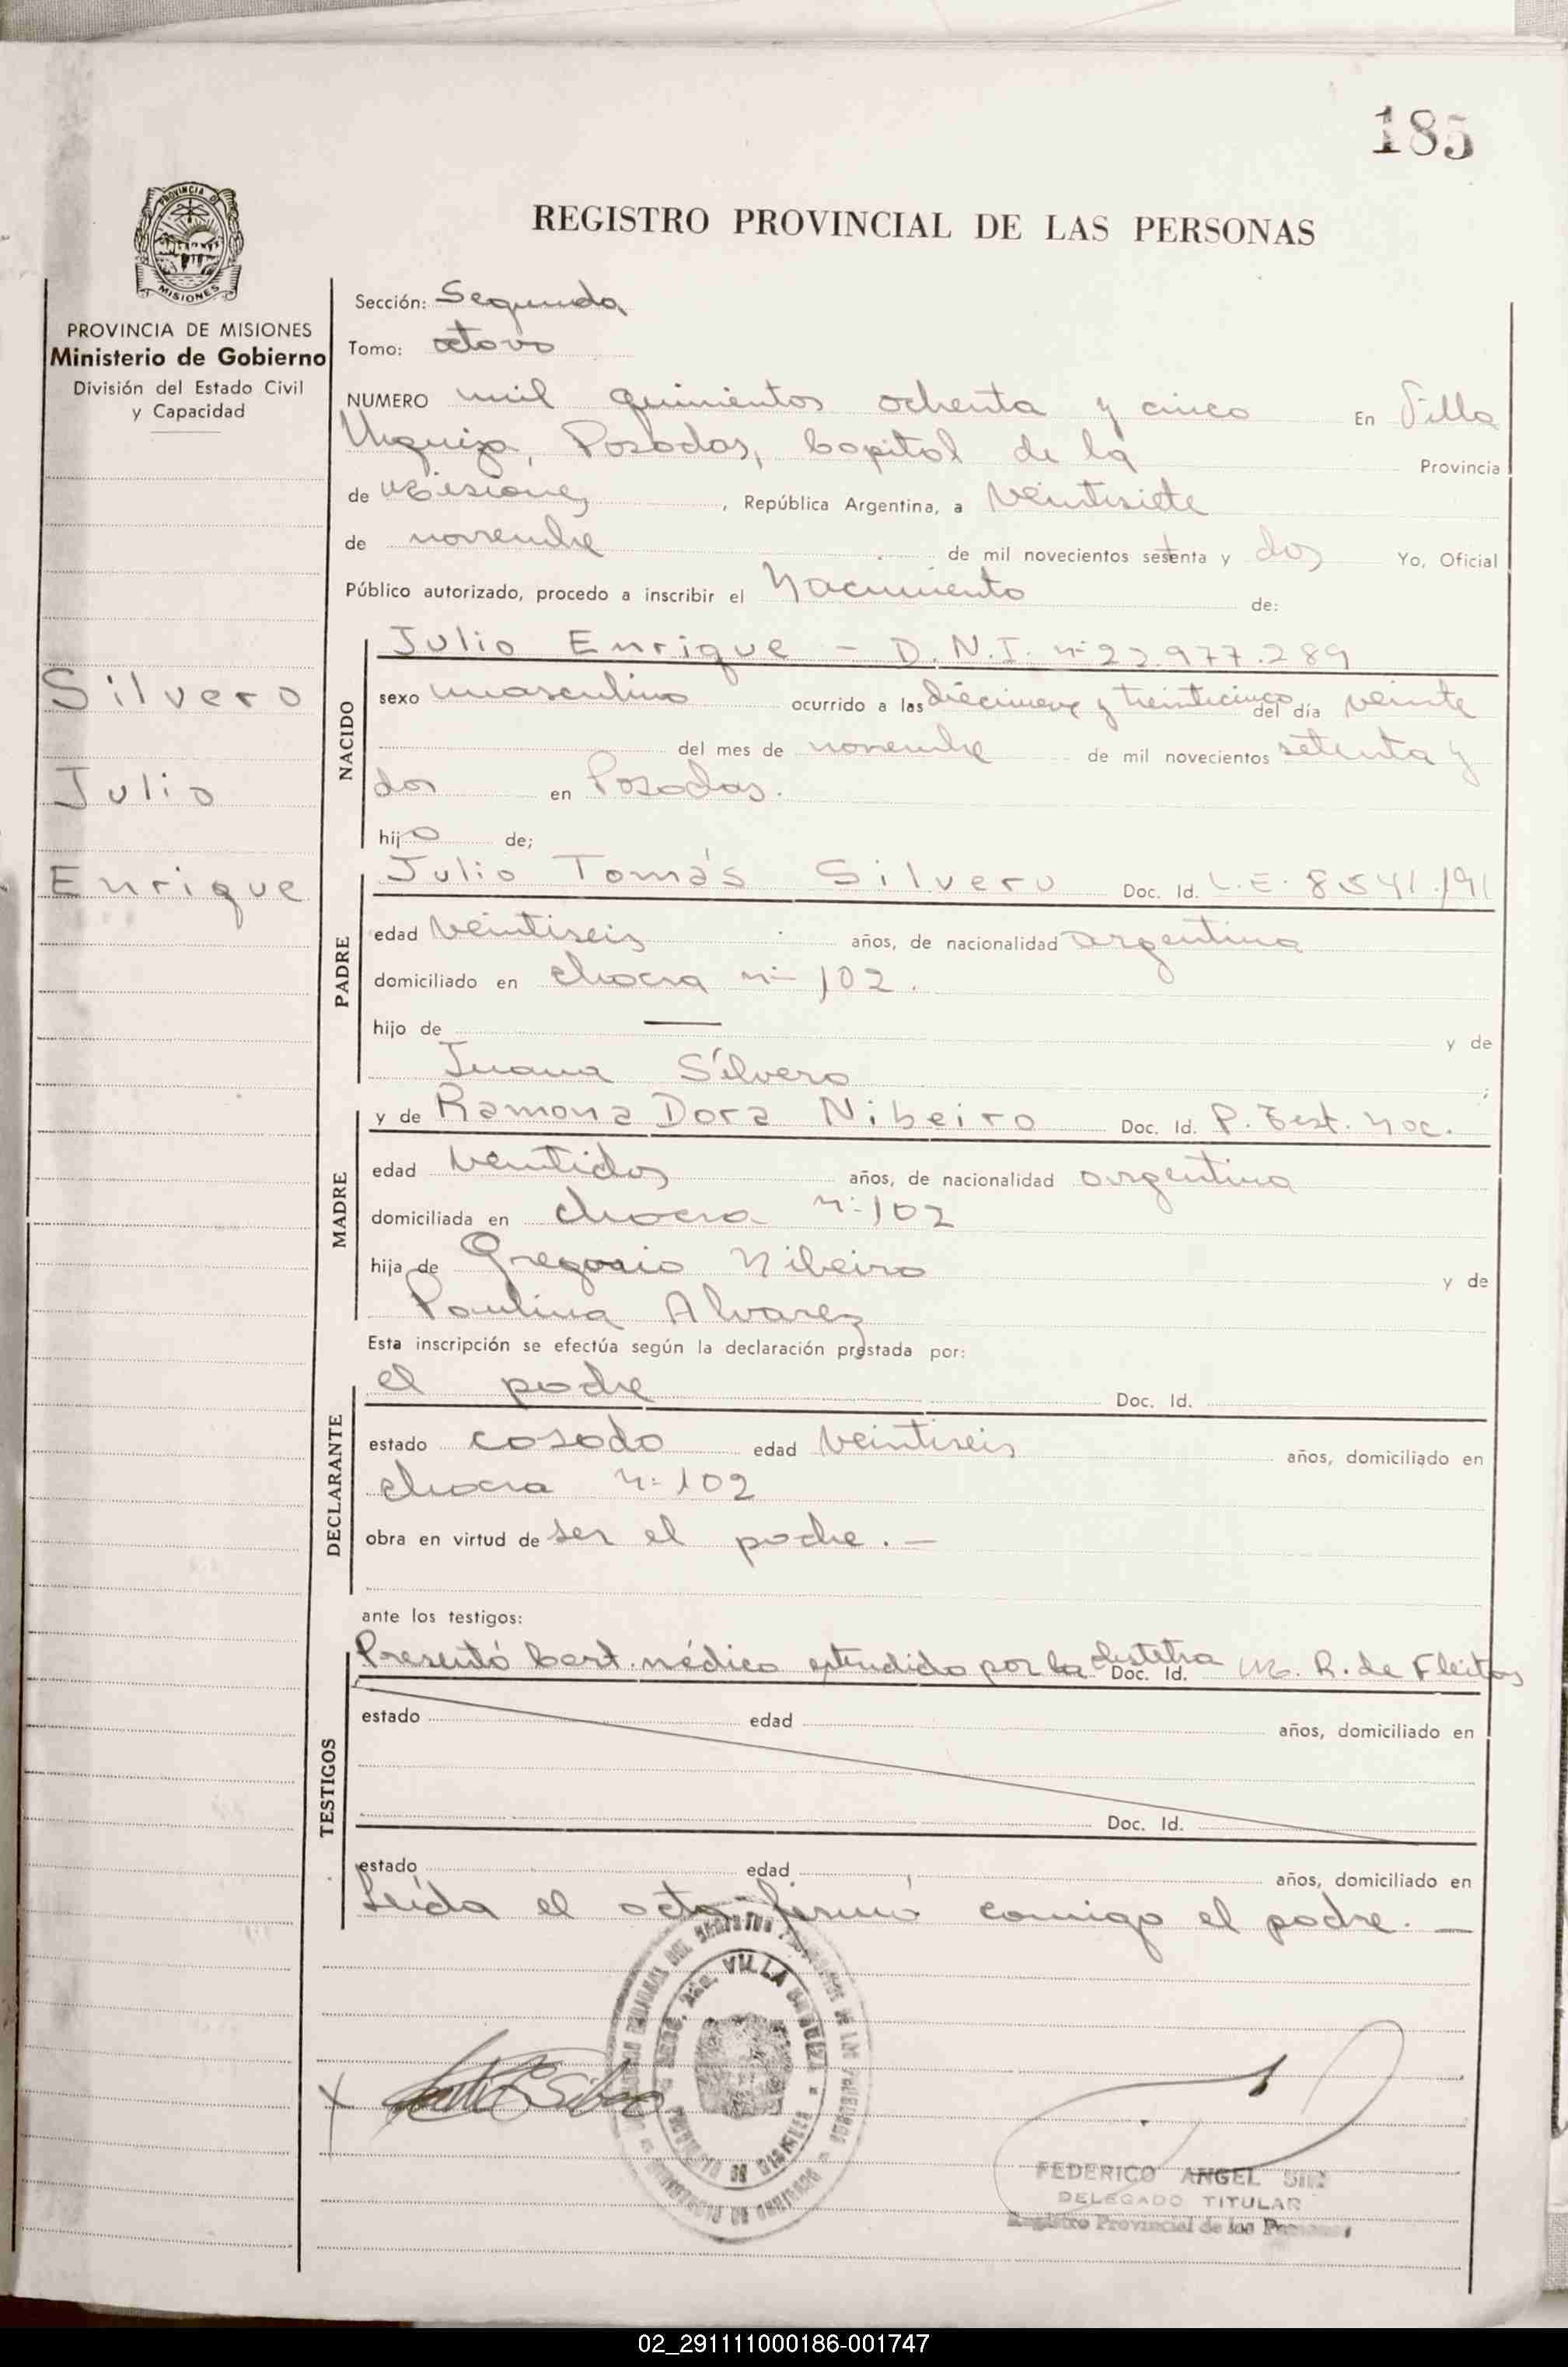 185
REGISTRO PROVINCIAL DE LAS PERSONAS
PROVINCIA DE MISIONES
Ministerio de Gobierno
División del Estado Civil
y Capacidad
Silvero
Julio
Enrique
Sección: Segunda
Tomo: octavo
NUMERO mil quinientos ochenta y cinco En Villa
Urquiza, Posadas, Capital de la Provincia
de Misiones, República Argentina, a veintisiete
de noviembre de mil novecientos setenta y dos Yo, Oficial
Público autorizado, procedo a inscribir el Nacimiento de:
NACIDO
Julio Enrique - D.N.I. nº 22.977.289
sexo masculino ocurrido a las diecinueve y treinticinco del día veinte
del mes de noviembre de mil novecientos setenta y
dos en Posadas.
hijo de;
PADRE
Julio Tomás Silvero Doc. Id. L.E. 8541.191
edad veintiseis años, de nacionalidad argentina
domiciliado en chacra nº 102.
hijo de — y de
Juana Silvero ;
MADRE
y de Ramona Dora Nibeiro Doc. Id. P. Test. Nac.
edad veintidos años, de nacionalidad argentina
domiciliada en chacra nº 102
hija de Gregorio Nibeiro y de
Paulina Alvarez
Esta inscripción se efectúa según la declaración prestada por:
DECLARANTE
el padre Doc. Id.
estado casado edad veintiseis años, domiciliado en
chacra nº 102
obra en virtud de ser el padre. —
ante los testigos:
TESTIGOS
Presentó Cert. médico extendido por la obstetra Doc. Id. M. R. de Fleitas
estado edad años, domiciliado en
Doc. Id.
estado edad años, domiciliado en
Leída el acta firmó conmigo el padre. —
VILLA URQUIZA
FEDERICO ANGEL
DELEGADO TITULAR
Registro Provincial de las Personas
02_291111000186-001747